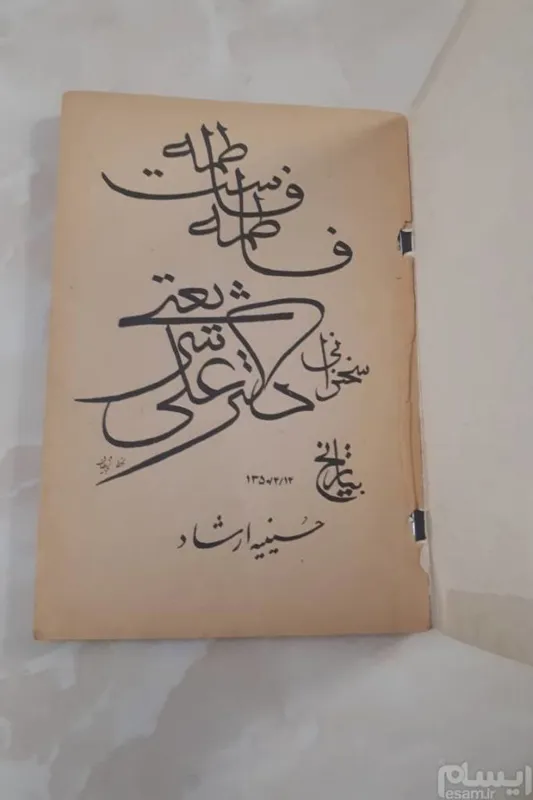 فاطمه فاطمه است
سخنرانی
دکتر علی شریعتی
بتاریخ
۱۳۵۰/۴/۱۲
حسینیه ارشاد
ایسام
esam.ir